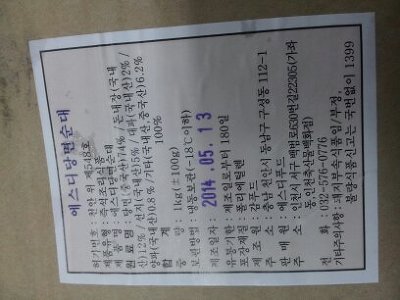 에스디당면순대
허가번호 : 천안 위 제548호
제품유형 : 즉석조리식품
제품명 : 에스디당면순대
원료명 : 당면(중국산)74% / 돈내장(국내
산)12% / 선지(국내산)5% / 대파(국내산)2% /
양파(국내산)0.8% / 기타(국내산,중국산)6.2%
합계 100%
중량 : 1kg(±100g)
보관방법 : 냉동보관(-18℃이하)
제조일자 : 2014.05.13
유통기한 : 제조일로부터 180일
포장재질 : 폴리에틸렌
제조원 :
소 : 충남 천안시 동남구 구성동 112-1
판매원 : 에스디푸드
소 : 인천시 서구 백범로630번길22305(가좌
전화 : 032-576-0776
기타주의사항 :
불량식품신고는 국번없이 1399